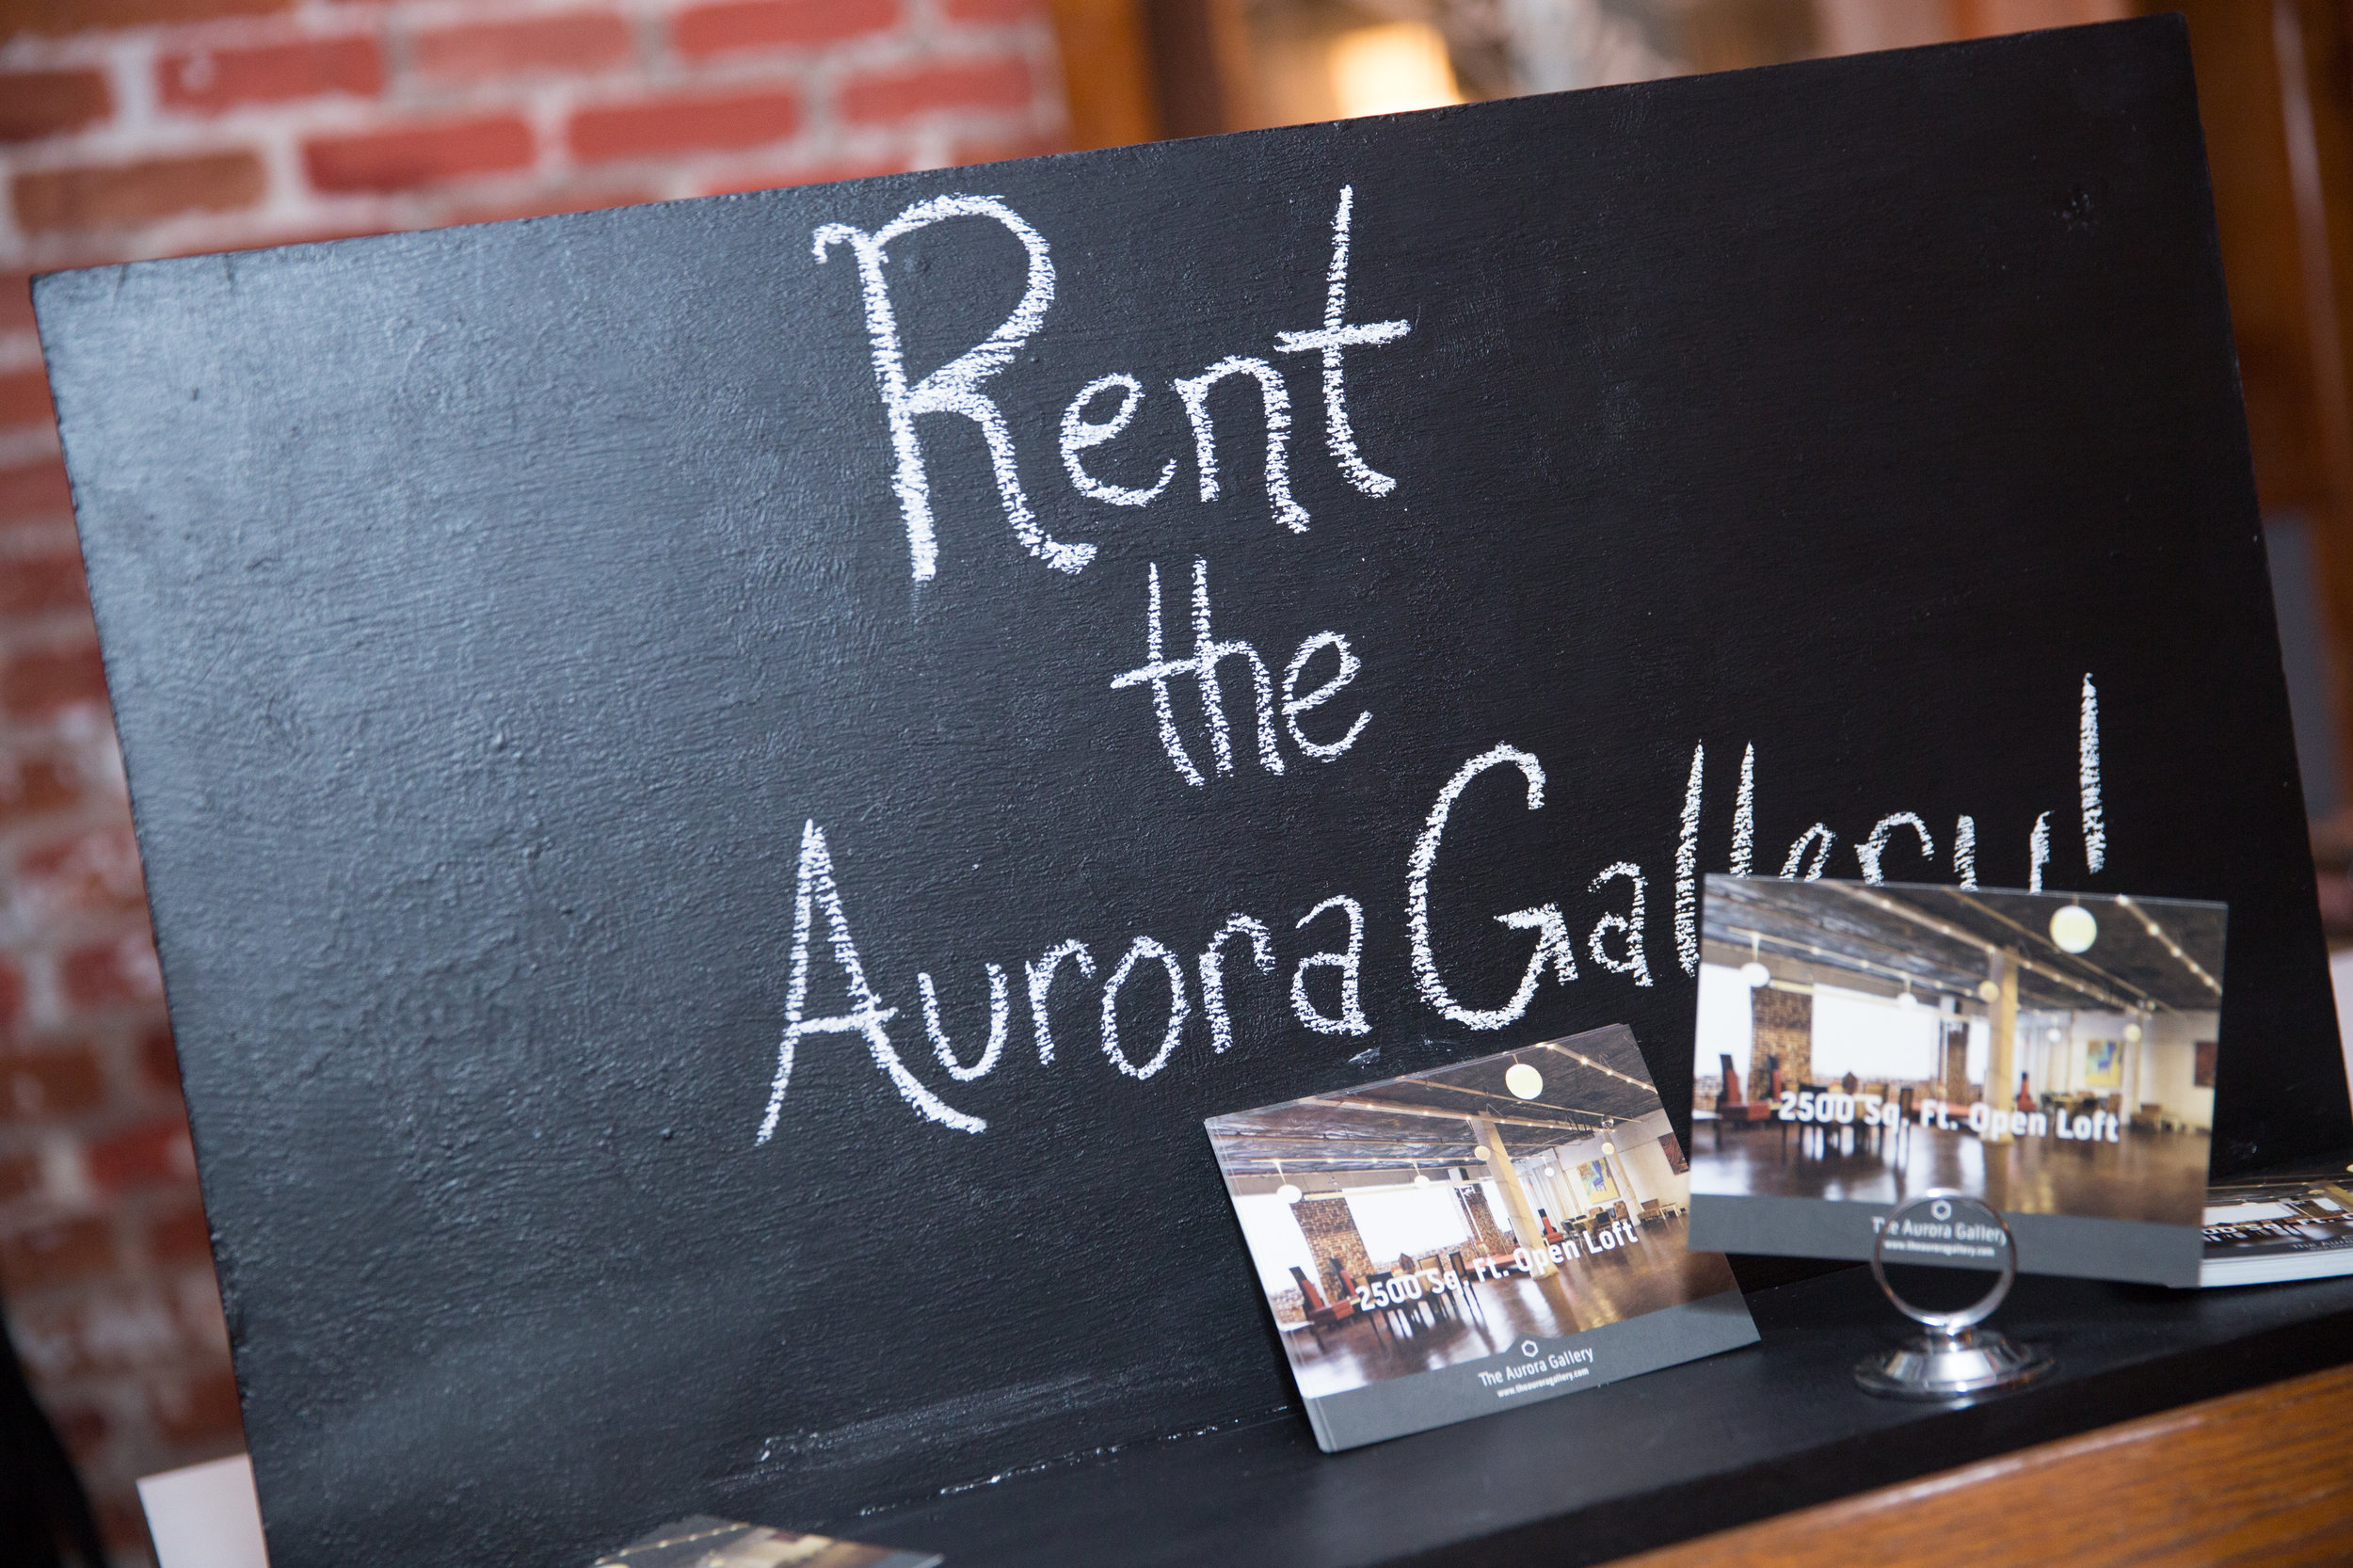 Rent
the
Aurora Gallery!
2500 Sq. Ft. Open Loft
The Aurora Gallery
www.theauroragallery.com
2500 Sq. Ft. Open Loft
The Aurora Gallery
www.theauroragallery.com